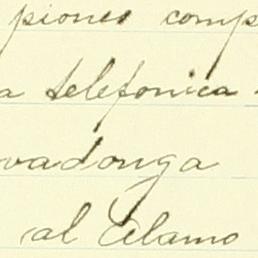 piones comp
a telefonica
vadonga
al Alamo